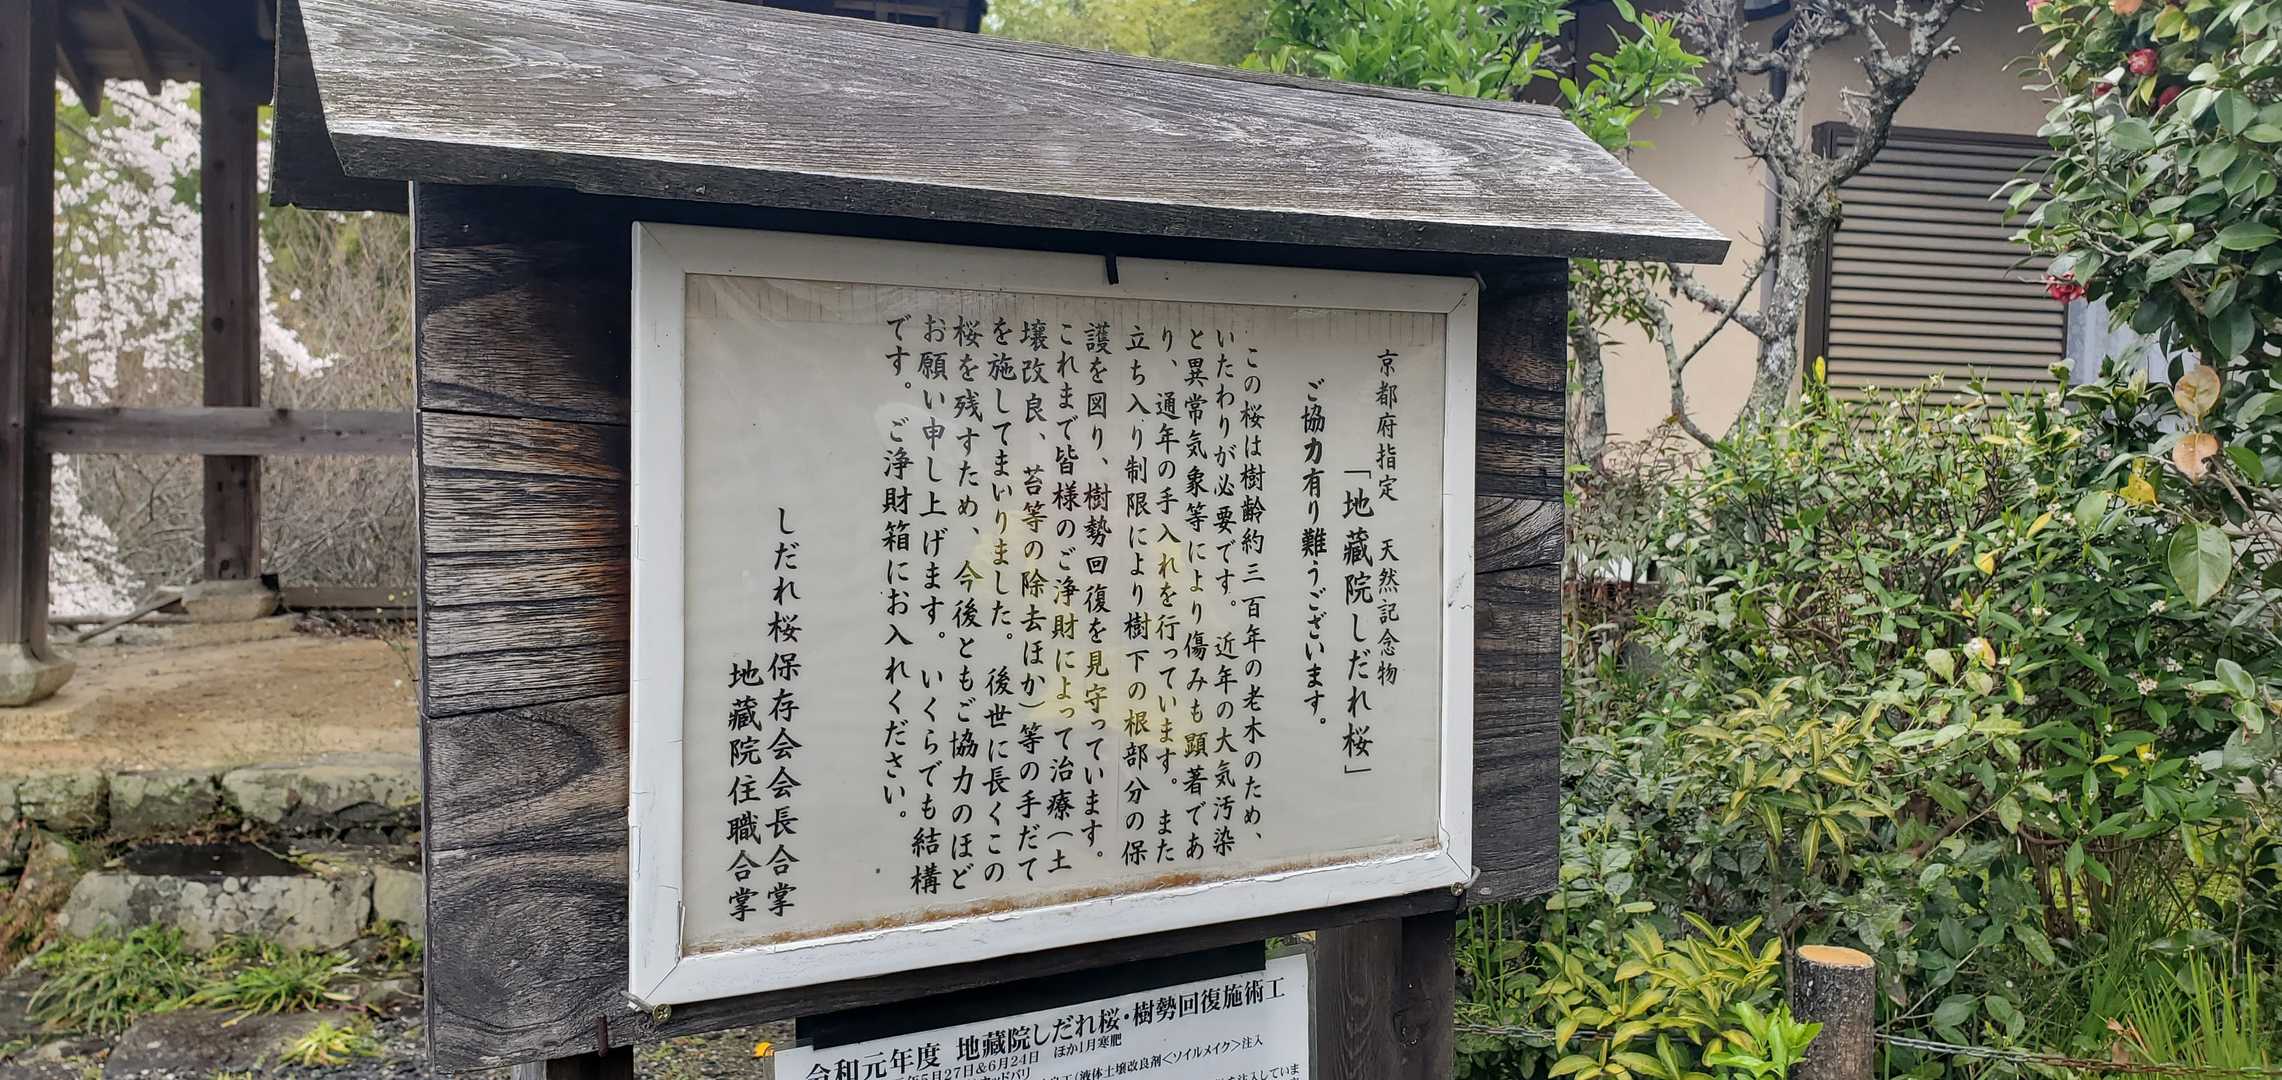 京都府指定　天然記念物
「地蔵院しだれ桜」
ご協力有り難うございます。
この桜は樹齢約三百年の老木のため、
いたわりが必要です。近年の大気汚染
と異常気象等により傷みも顕著であ
り、通年の手入れを行っています。また
立ち入り制限により樹下の根部分の保
護を図り、樹勢回復を見守っています。
これまで皆様のご浄財によって治療（土
壌改良、苔等の除去ほか）等の手だて
を施してまいりました。後世に長くこの
桜を残すため、今後ともご協力のほど
お願い申し上げます。いくらでも結構
です。ご浄財箱にお入れください。
しだれ桜保存会会長合掌
地蔵院住職合掌
令和元年度 地蔵院しだれ桜・樹勢回復施術工
年5月27日&6月24日　ほか1月寒肥
(液体土壌改良剤<ソイルメイク>注入
を注入していま